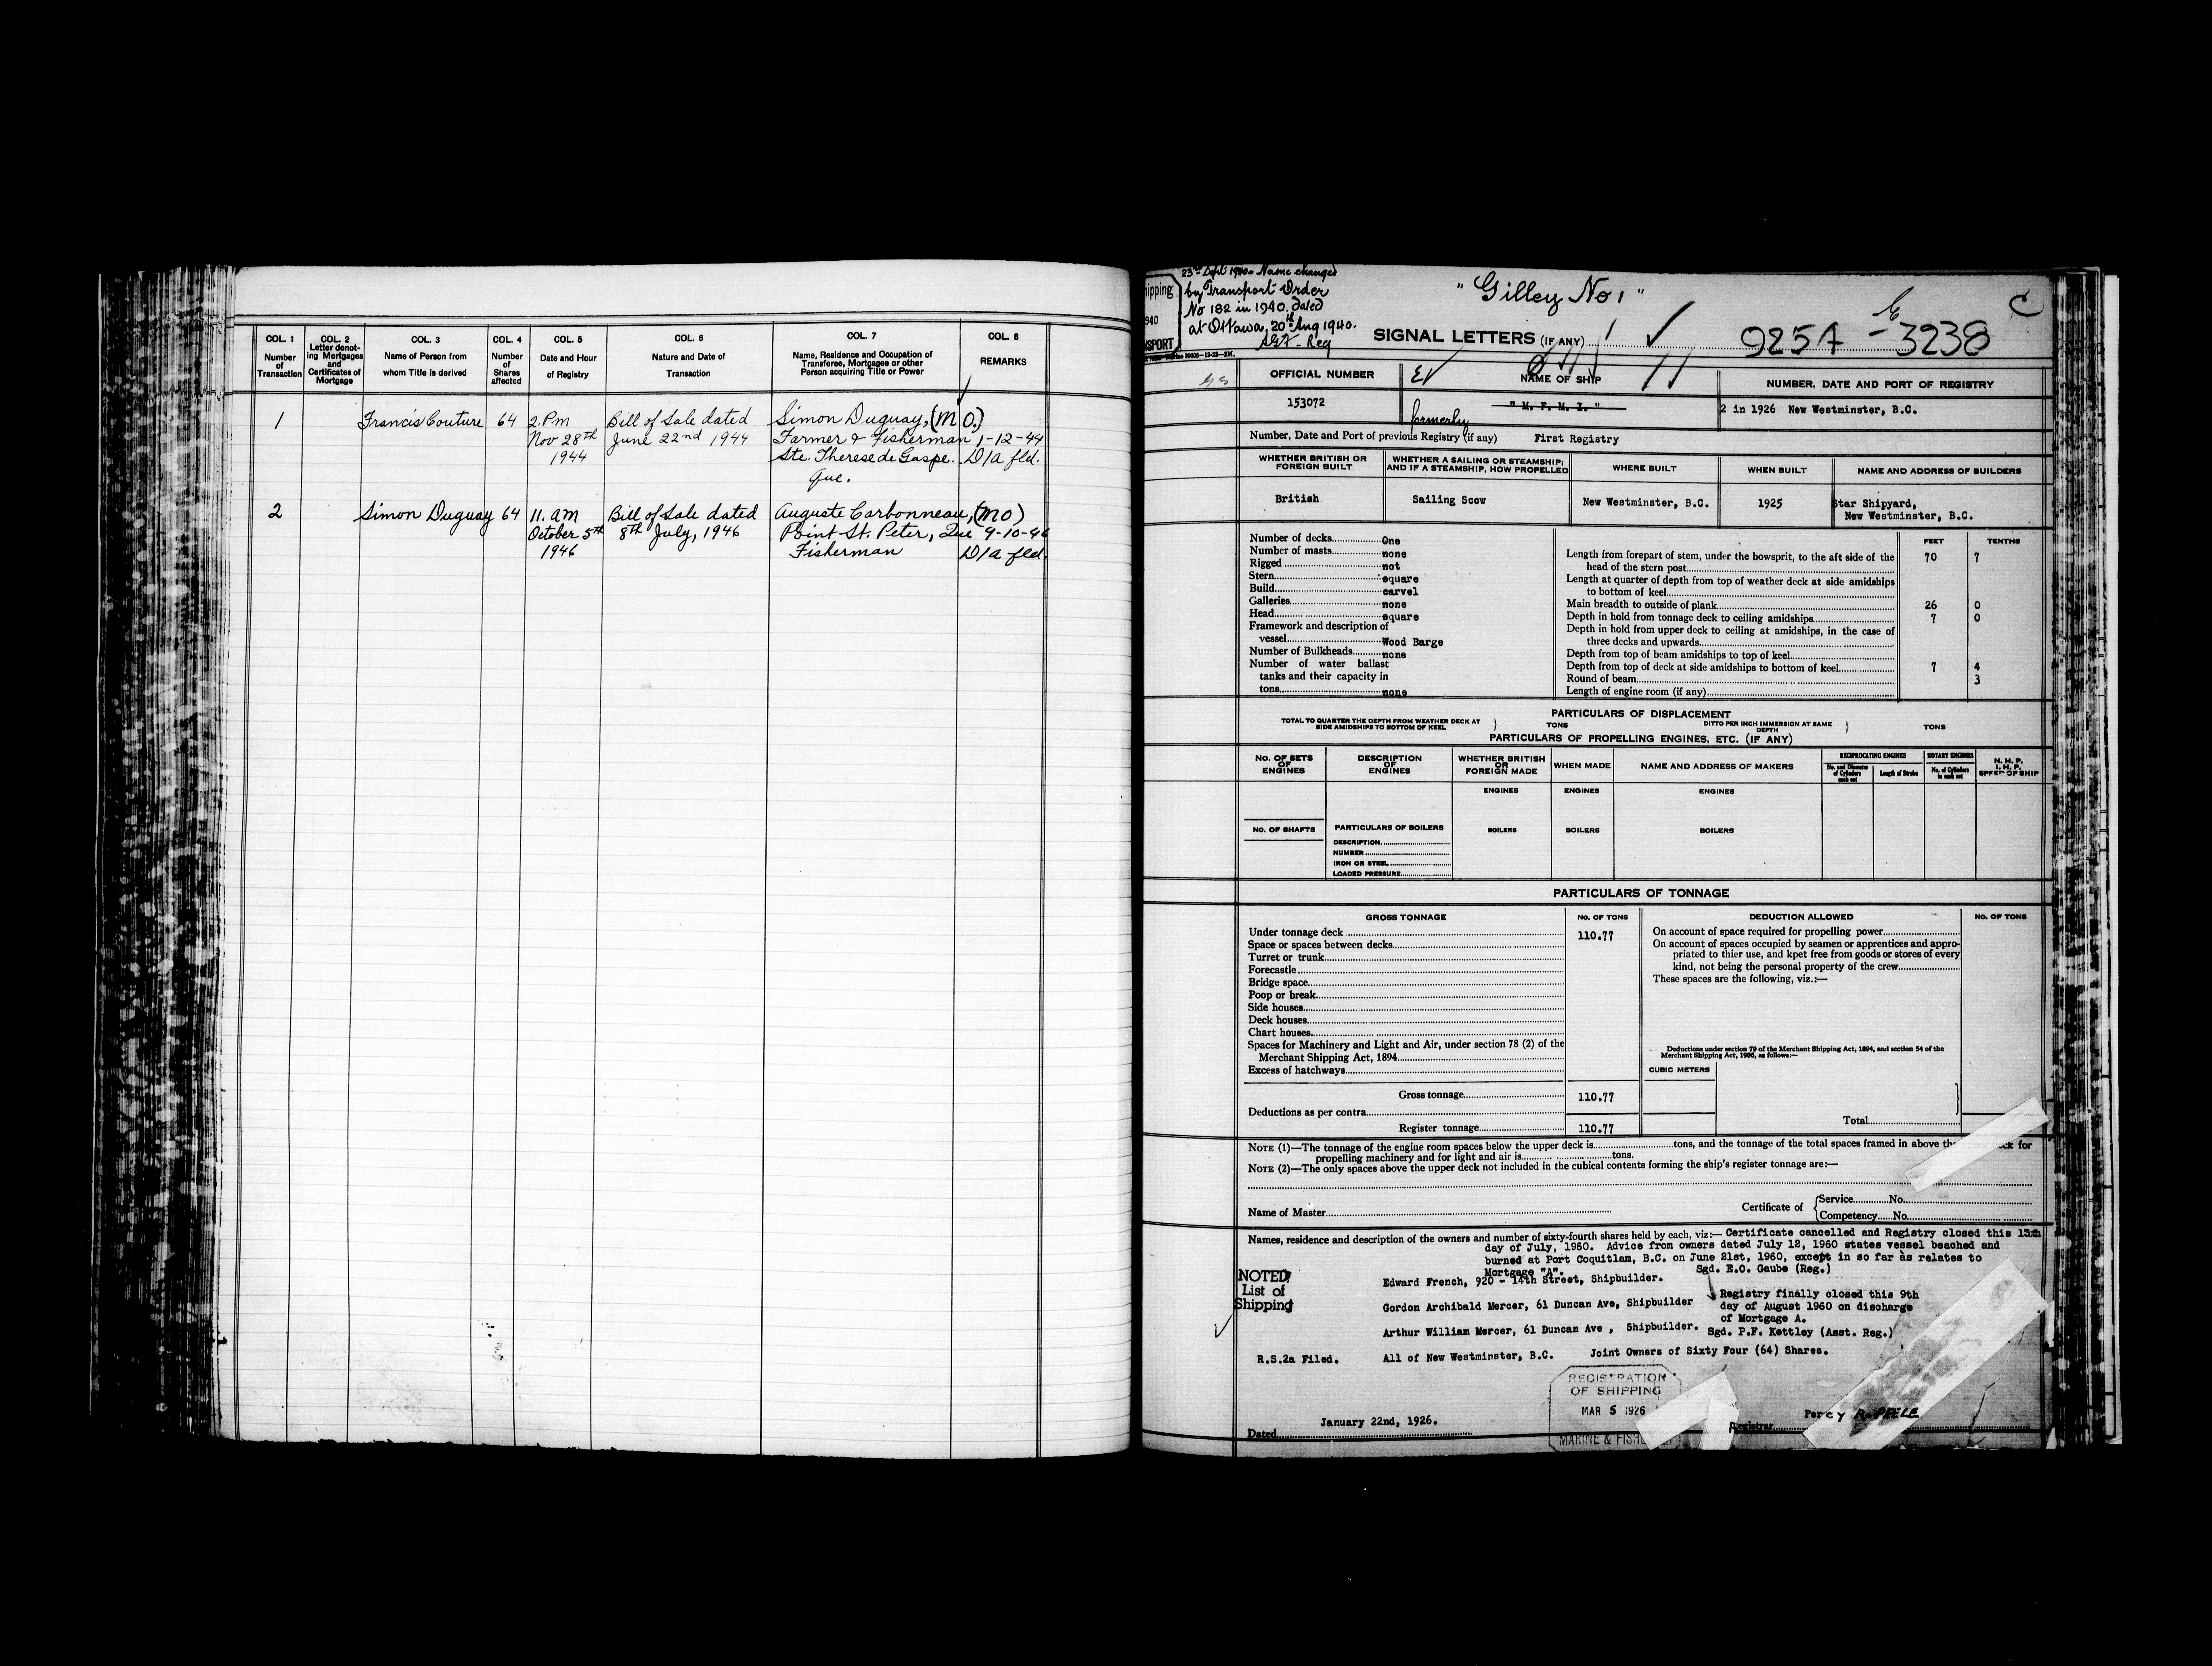 COL. 1
Number
of
Transaction
COL. 2
Letter denot-
ing Mortgages
and
Certificates of
Mortgage
COL. 3
Name of Person from
whom Title is derived
COL. 4
Number
of
Shares
affected
COL. 5
Date and Hour
of Registry
COL. 6
Nature and Date of
Transaction
COL. 7
Name, Residence and Occupation of
Transferee, Mortgagee or other
Person acquiring Title or Power
COL. 8
REMARKS
1 Francis Couture 64 2. P.m Bill of Sale dated Simon Duguay, (M.O.)
Nov 28th June 22nd 1944 Farmer & Fisherman 1-12-44
1944 Ste. Therese de Gaspe. D/a fld.
Que.
2 Simon Duguay 64 11. am Bill of Sale dated Auguste Carbonneau, (MO)
October 5th 8th July, 1946 Point-St. Peter, Que 9-10-46
1946 Fisherman D/a fld.
hipping
940
NSPORT
23rd Sept 1940 - Name changed
by Transport Order
No 182 in 1940. dated
at Ottawa, 20th Aug 1940.
"Gilley No 1"
SIGNAL LETTERS (IF ANY)
925A - 3238
C
OFFICIAL NUMBER
153072
NAME OF SHIP
formerly "M. F. M. I."
NUMBER, DATE AND PORT OF REGISTRY
2 in 1926 New Westminster, B.C.
Number, Date and Port of previous Registry (if any) First Registry
WHETHER BRITISH OR
FOREIGN BUILT
WHETHER A SAILING OR STEAMSHIP;
AND IF A STEAMSHIP, HOW PROPELLED
WHERE BUILT
WHEN BUILT
NAME AND ADDRESS OF BUILDERS
British
Sailing Scow
New Westminster, B.C.
1925
Star Shipyard,
New Westminster, B.C.
Number of decks One
Number of masts none
Rigged not
Stern square
Build carvel
Galleries none
Head square
Framework and description of
vessel Wood Barge
Number of Bulkheads none
Number of water ballast
tanks and their capacity in
tons none
FEET TENTHS
Length from forepart of stem, under the bowsprit, to the aft side of the
head of the stern post 70 7
Length at quarter of depth from top of weather deck at side amidships
to bottom of keel
Main breadth to outside of plank 26 0
Depth in hold from tonnage deck to ceiling amidships 7 0
Depth in hold from upper deck to ceiling at amidships, in the case of
three decks and upwards
Depth from top of beam amidships to top of keel
Depth from top of deck at side amidships to bottom of keel 7 4
Round of beam 3
Length of engine room (if any)
PARTICULARS OF DISPLACEMENT
TOTAL TO QUARTER THE DEPTH FROM WEATHER DECK AT
SIDE AMIDSHIPS TO BOTTOM OF KEEL
TONS
DITTO PER INCH IMMERSION AT SAME
DEPTH
TONS
PARTICULARS OF PROPELLING ENGINES, ETC. (IF ANY)
No. OF SETS
OF
ENGINES
DESCRIPTION
OF
ENGINES
WHETHER BRITISH
OR
FOREIGN MADE
WHEN MADE
NAME AND ADDRESS OF MAKERS
RECIPROCATING ENGINES
No. and Diameter
of Cylinders
each set
Length of Stroke
ROTARY ENGINES
No. of Cylinders
in each set
N. H. P.
I. H. P.
SPEED OF SHIP
ENGINES ENGINES ENGINES
NO. OF SHAFTS
PARTICULARS OF BOILERS
BOILERS BOILERS BOILERS
DESCRIPTION
NUMBER
IRON OR STEEL
LOADED PRESSURE
PARTICULARS OF TONNAGE
GROSS TONNAGE No. OF TONS DEDUCTION ALLOWED No. OF TONS
Under tonnage deck 110.77
Space or spaces between decks
Turret or trunk
Forecastle
Bridge space
Poop or break
Side houses
Deck houses
Chart houses
Spaces for Machinery and Light and Air, under section 78 (2) of the
Merchant Shipping Act, 1894
Excess of hatchways
Gross tonnage 110.77
Deductions as per contra
Register tonnage 110.77
On account of space required for propelling power
On account of spaces occupied by seamen or apprentices and appro-
priated to thier use, and kpet free from goods or stores of every
kind, not being the personal property of the crew
These spaces are the following, viz.:—
Deductions under section 79 of the Merchant Shipping Act, 1894, and section 54 of the
Merchant Shipping Act, 1906, as follows:—
CUBIC METERS
Total
NOTE (1)—The tonnage of the engine room spaces below the upper deck is tons, and the tonnage of the total spaces framed in above the deck for
propelling machinery and for light and air is tons.
NOTE (2)—The only spaces above the upper deck not included in the cubical contents forming the ship's register tonnage are:—
Name of Master
Certificate of
Service No.
Competency No.
Names, residence and description of the owners and number of sixty-fourth shares held by each, viz:— Certificate cancelled and Registry closed this 15th
day of July, 1960. Advice from owners dated July 12, 1960 states vessel beached and
burned at Port Coquitlam, B.C. on June 21st, 1960, except in so far as relates to
Mortgage "A". Sgd. E.O. Gaube (Reg.)
NOTED
List of
Shipping
Edward French, 920 - 14th Street, Shipbuilder.
Gordon Archibald Mercer, 61 Duncan Ave, Shipbuilder
Arthur William Mercer, 61 Duncan Ave, Shipbuilder.
Registry finally closed this 9th
day of August 1960 on discharge
of Mortgage A.
Sgd. P.F. Kettley (Asst. Reg.)
R.S.2a Filed. All of New Westminster, B.C. Joint Owners of Sixty Four (64) Shares.
REGISTRATION
OF SHIPPING
MAR 5 1926
MARINE & FISHE
Dated January 22nd, 1926.
Registrar Percy R. PEELE